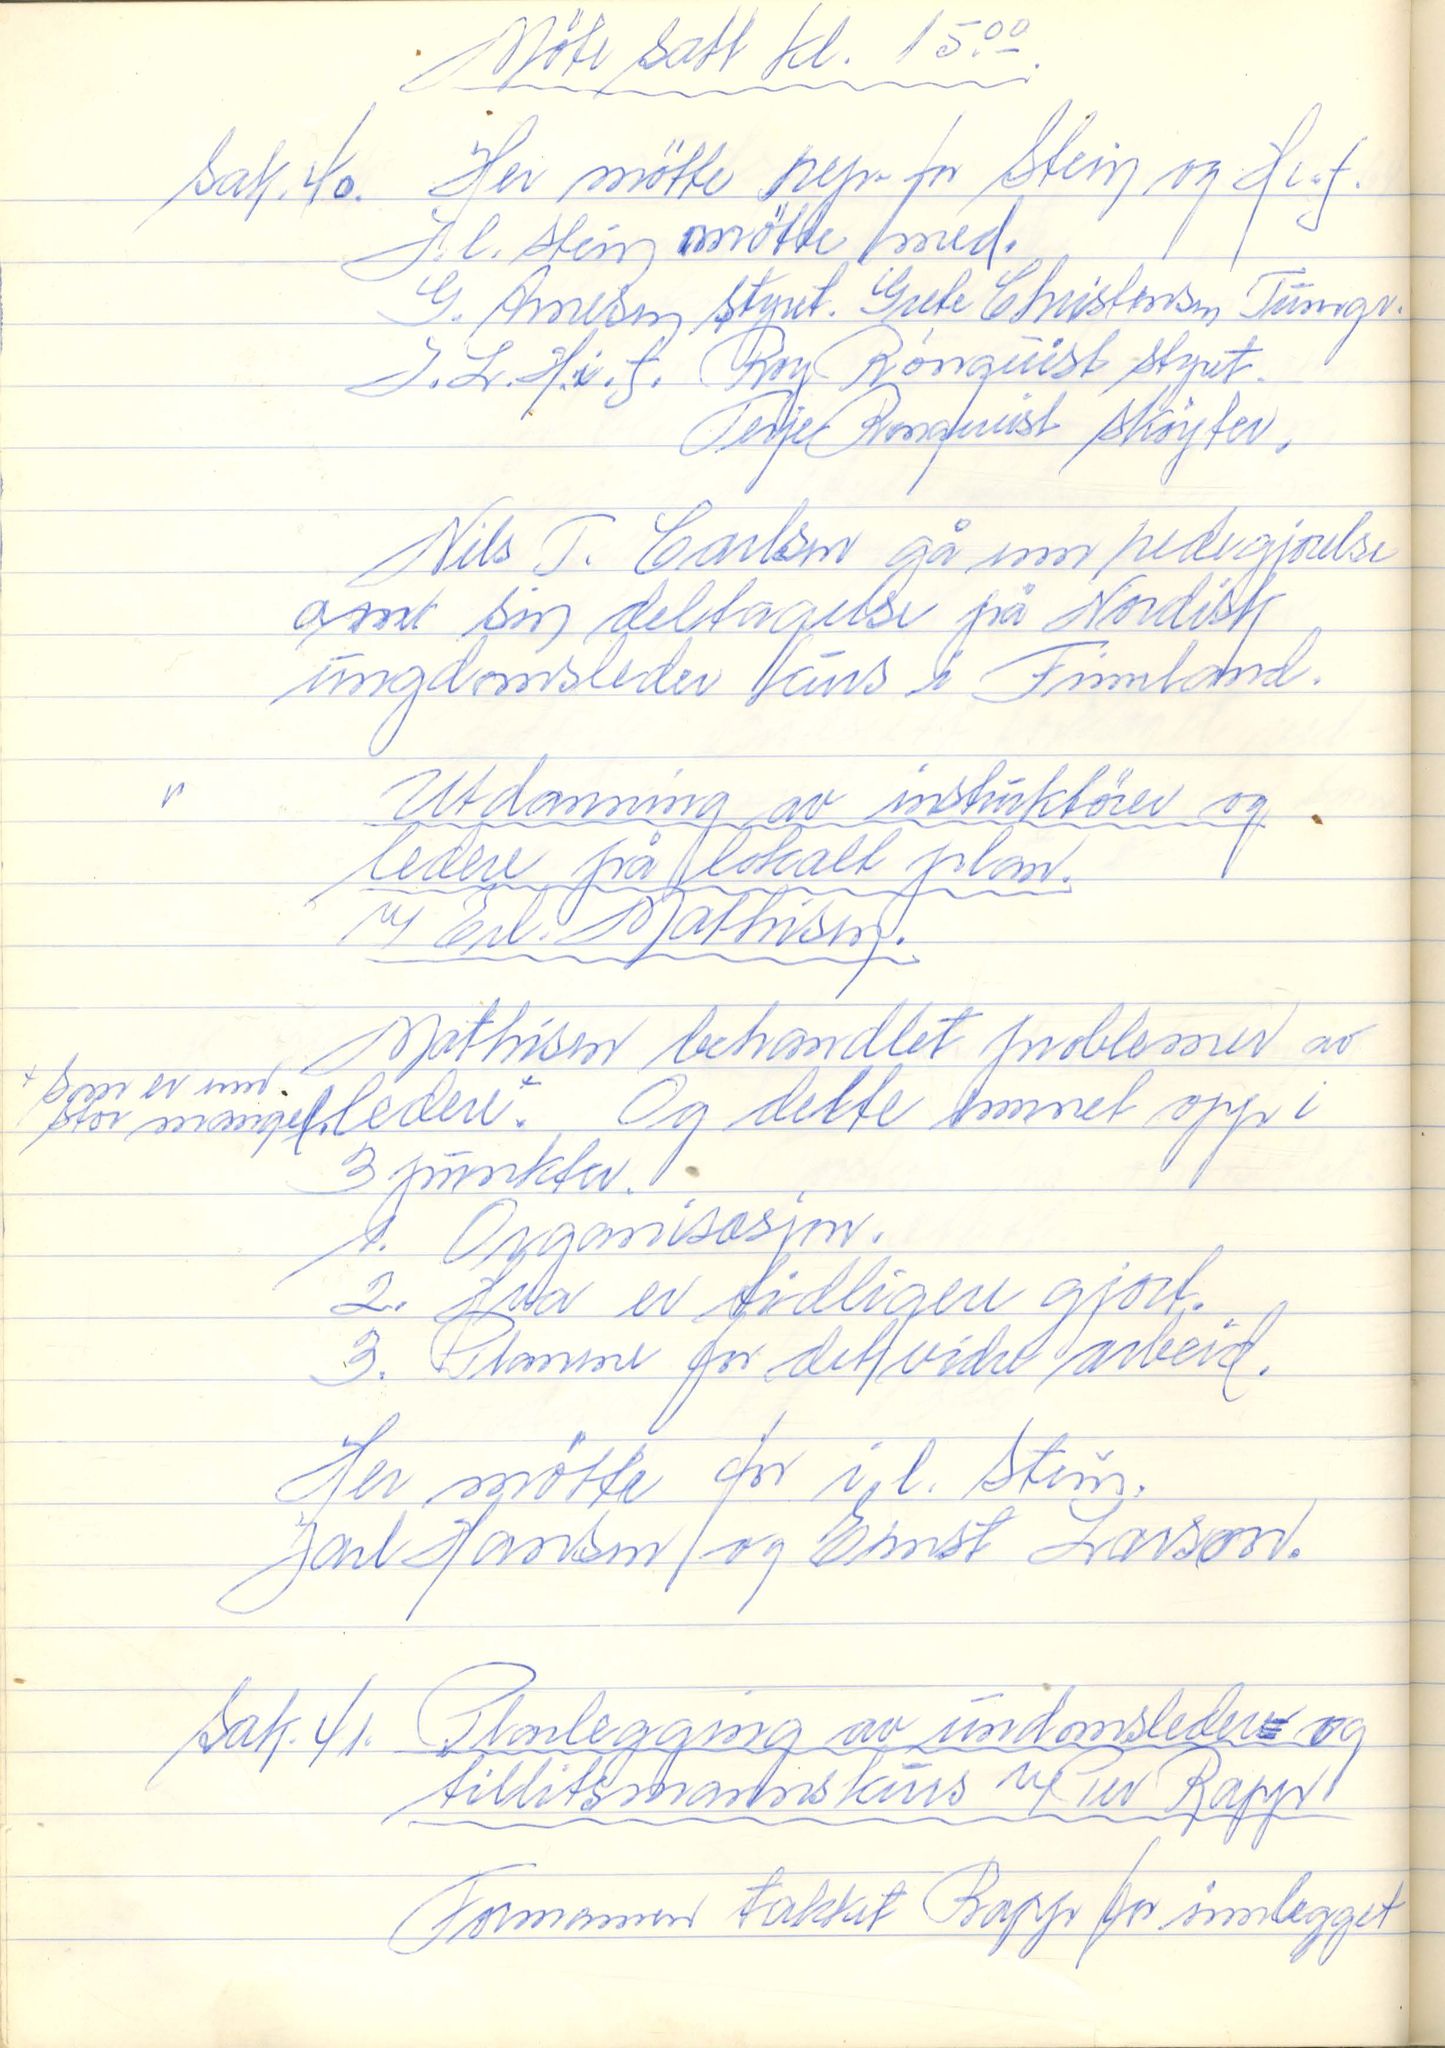 Möte satt kl. 15.00.
Sak. 40. Her mötte repr. for Stein og H.i.f.
I.l. Stein mötte med.
G. Arnesen styret. Grete Christensen Turngr.
I.L. H.i.f. Roy Rönquist styret.
Terje Ronquist skøyter.
Nils T. Carlsen ga en redegjørelse
om sin deltagelse på Nordisk
ungdomsleder kurs i Finnland.
" Utdanning av instruktörer og
ledere på lokalt plan.
v/ Erl. Mathisen.
Mathisen behandlet problemer av
ledere.+ Og dette emnet opp i
+ som er en
stor mangel.
3 punkter.
1. Organisasjon.
2. Hva er tidligere gjort.
3. Planne for det vidre arbeid.
Her møtte for i.l. Stein.
Jarl Hansen og Ernst Larsen.
Sak. 41. Planlegging av undomsledere og
tillitsmannskurs v/ Per Rapp
Formannen takket Rapp for innlegget